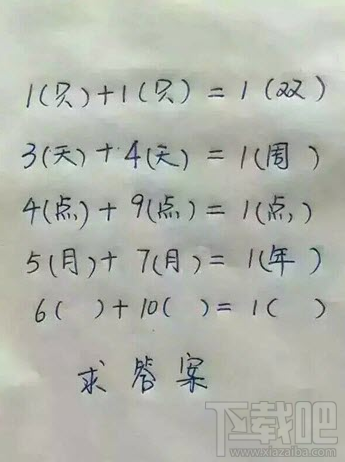 1(只)+1(只)=1(双)
3(天)+4(天)=1(周)
4(点)+9(点)=1(点)
5(月)+7(月)=1(年)
6( )+10( )=1( )
求答案
下载吧
www.xiazaiba.com